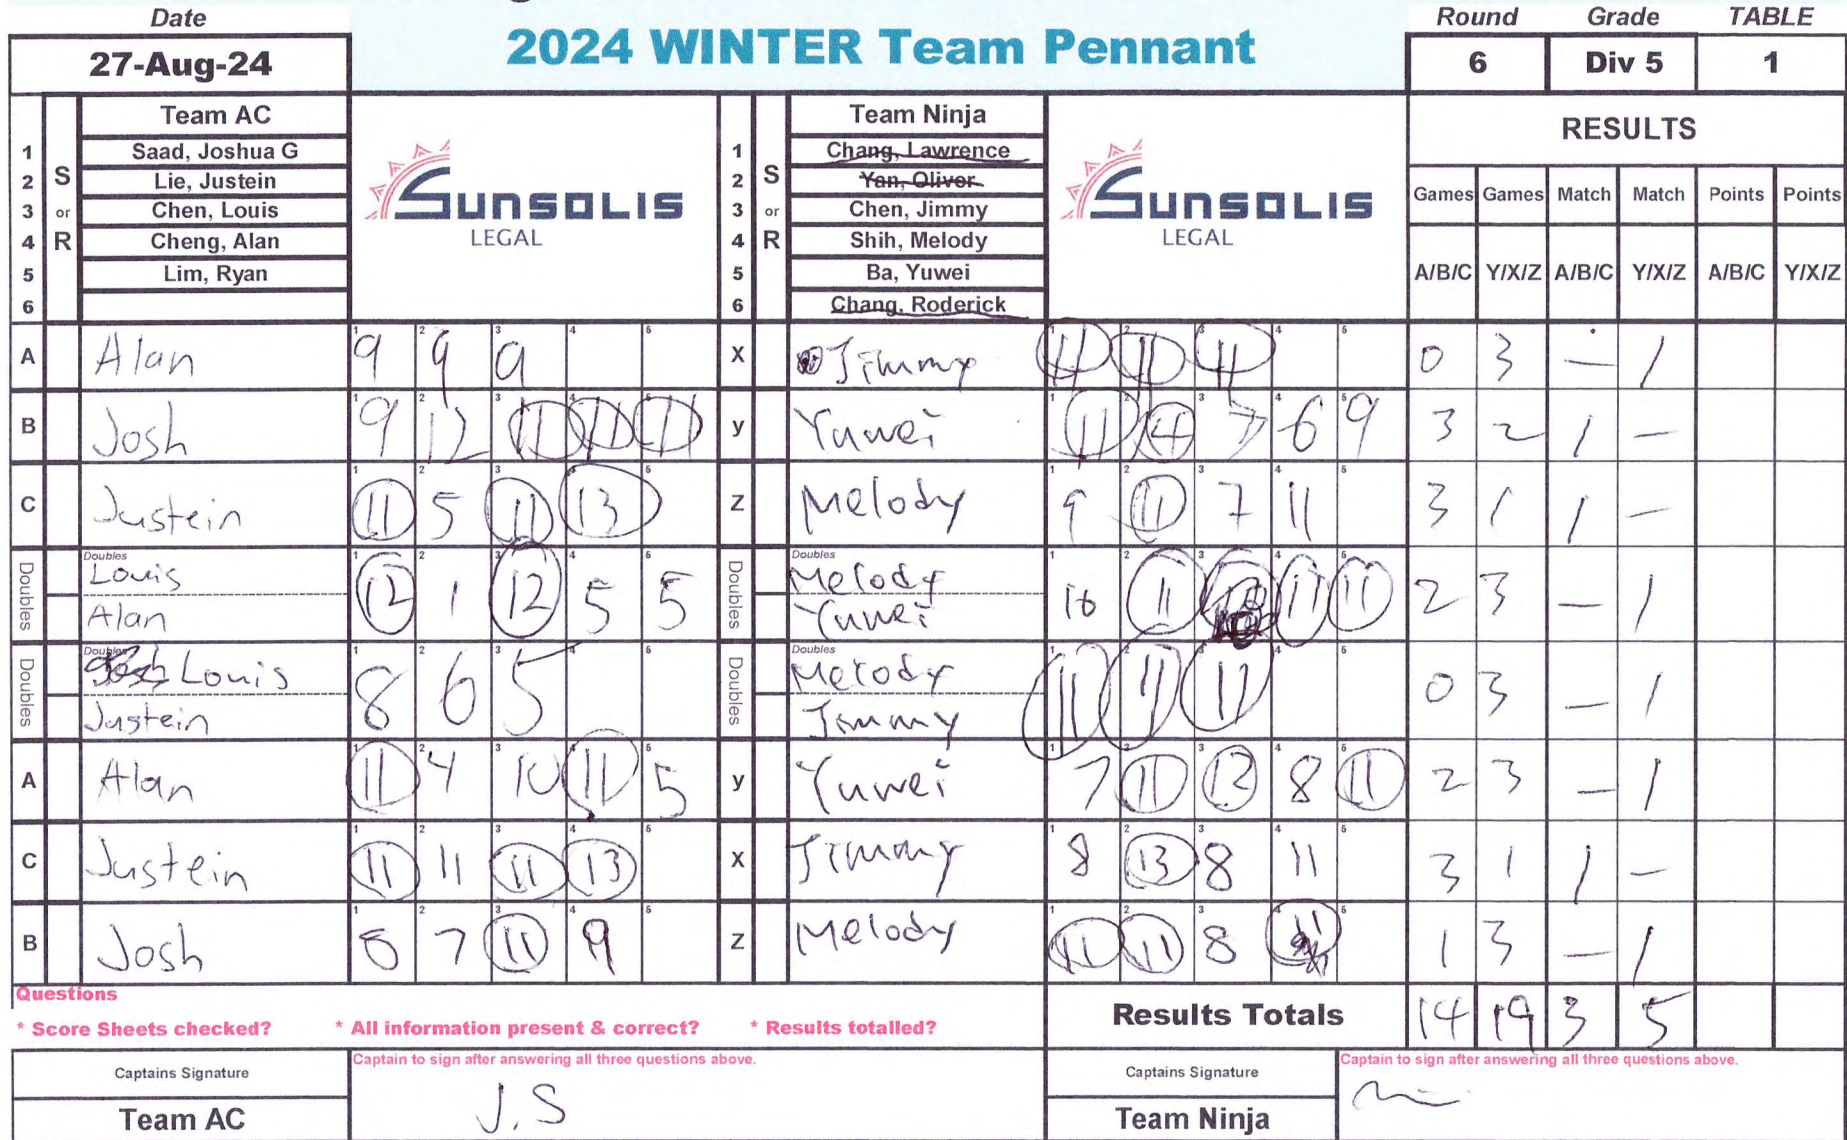 Date
27-Aug-24
2024 WINTER Team Pennant
Round Grade TABLE
6 Div 5 1
S or R
Team AC
1 Saad, Joshua G
2 Lie, Justein
3 Chen, Louis
4 Cheng, Alan
5 Lim, Ryan
6
SUNSOLIS
LEGAL
S or R
Team Ninja
1 Chang, Lawrence
2 Yan, Oliver
3 Chen, Jimmy
4 Shih, Melody
5 Ba, Yuwei
6 Chang, Roderick
SUNSOLIS
LEGAL
RESULTS
Games Games Match Match Points Points
A/B/C Y/X/Z A/B/C Y/X/Z A/B/C Y/X/Z
A Alan 9 9 9 X Jimmy 11 11 11 0 3 — 1
B Josh 9 12 11 11 11 y Yuwei 11 14 7 6 9 3 2 1 —
C Justein 11 5 11 13 Z Melody 9 11 7 11 3 1 1 —
Doubles Doubles Louis Alan 12 1 12 5 5 Doubles Doubles Melody Yuwei 10 11 11 11 2 3 — 1
Doubles Doubles Louis Justein 8 6 5 Doubles Doubles Melody Jimmy 11 11 11 0 3 — 1
A Alan 11 4 10 11 5 y Yuwei 7 11 12 8 11 2 3 — 1
C Justein 11 11 11 13 X Jimmy 8 13 8 11 3 1 1 —
B Josh 8 7 11 9 Z Melody 11 11 8 11 1 3 — 1
Questions
* Score Sheets checked? * All information present & correct? * Results totalled?
Results Totals 14 19 3 5
Captains Signature
Captain to sign after answering all three questions above.
J.S
Team AC
Captains Signature
Captain to sign after answering all three questions above.
Team Ninja